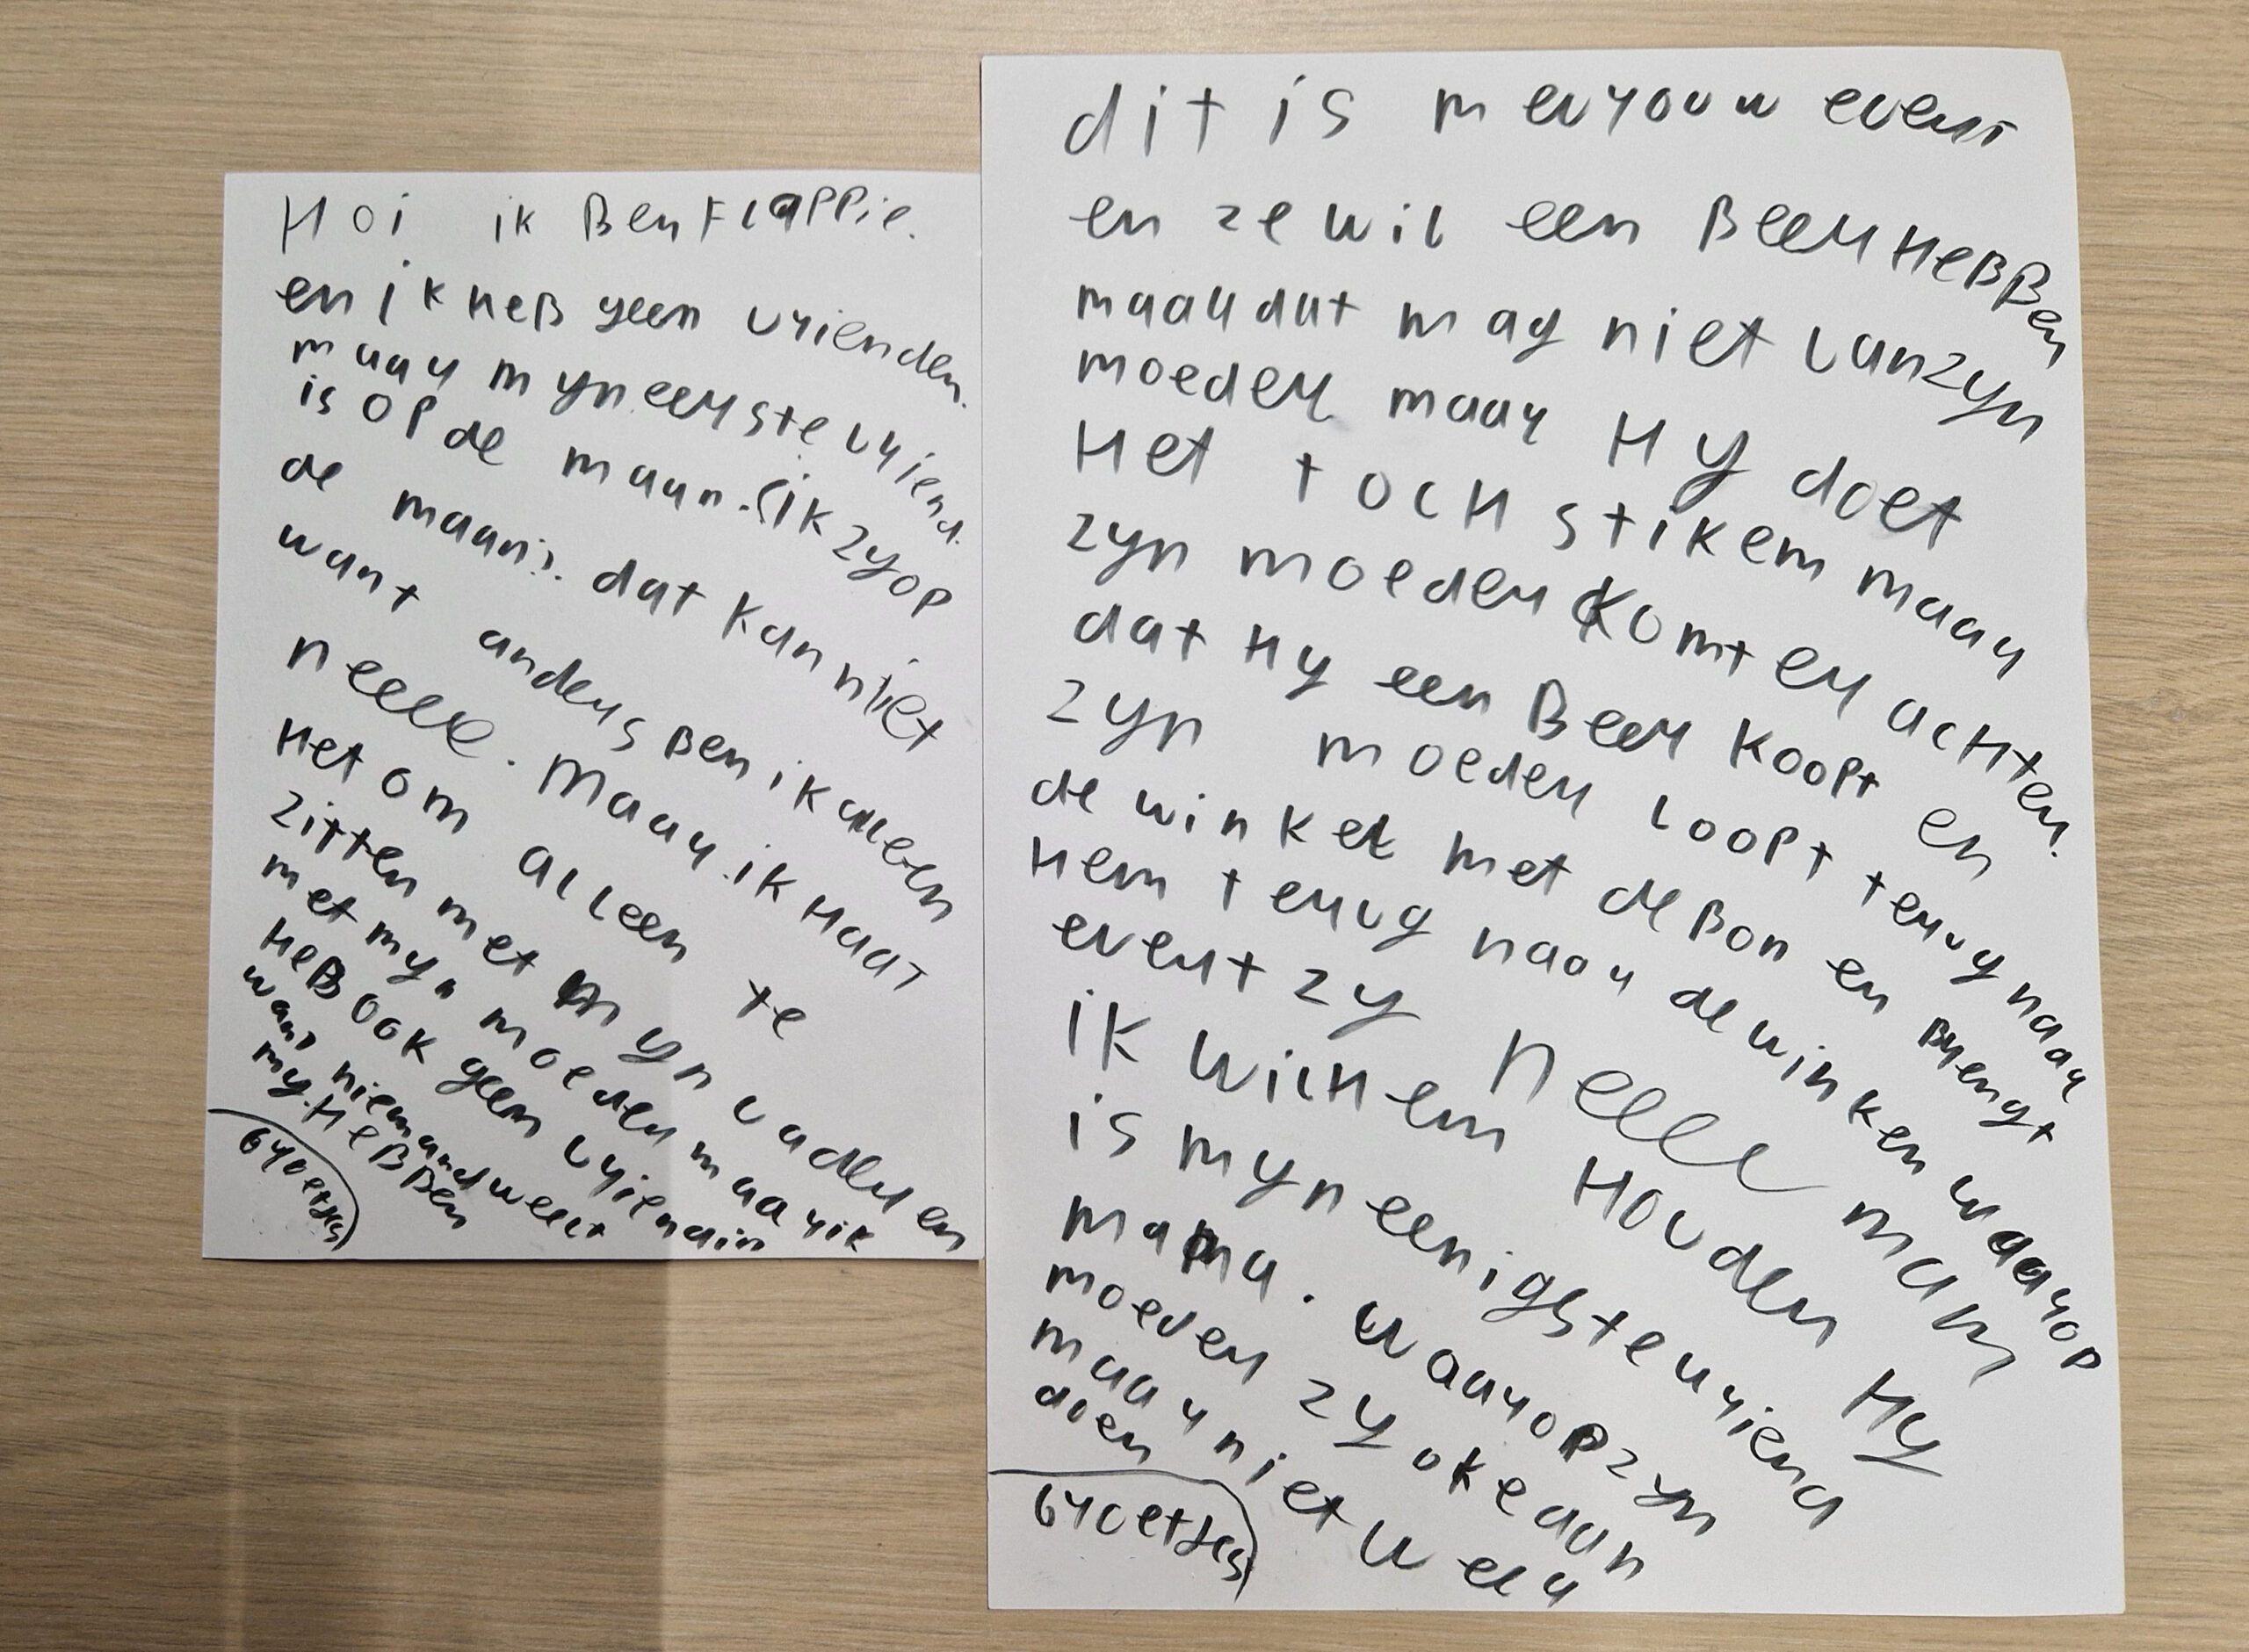 Hoi ik Ben Flappie.
en ik heB geen vrienden.
maar myn eerste vriend.
is op de maan. (ik zy op
de maan). dat kan niet
want anders Ben ik alleen
neeee. Maar ik Haat
Het om alleen te
zitten met myn vader en
met myn moeder maar ik
HeB ook geen vriendin
want niemand weet
my. HeBBen
Groetjes
dit is mevrouw evert
en ze wil een Beer HeBBen
maar dat mag niet van zyn
moeder maar Hy doet
Het toch stikem maar
zyn moeder komt er achter.
dat Hy een Beer koopt en
zyn moeder loopt terug naar
de winkel met de Bon en Brengt
Hem terug naar de winkel waarop
evert zy neeee mam
ik wil Hem Houden Hy
is myn eenigste vriend
mama. waarop zyn
moeder zy oke dan
maar niet weer
doen
Groetjes